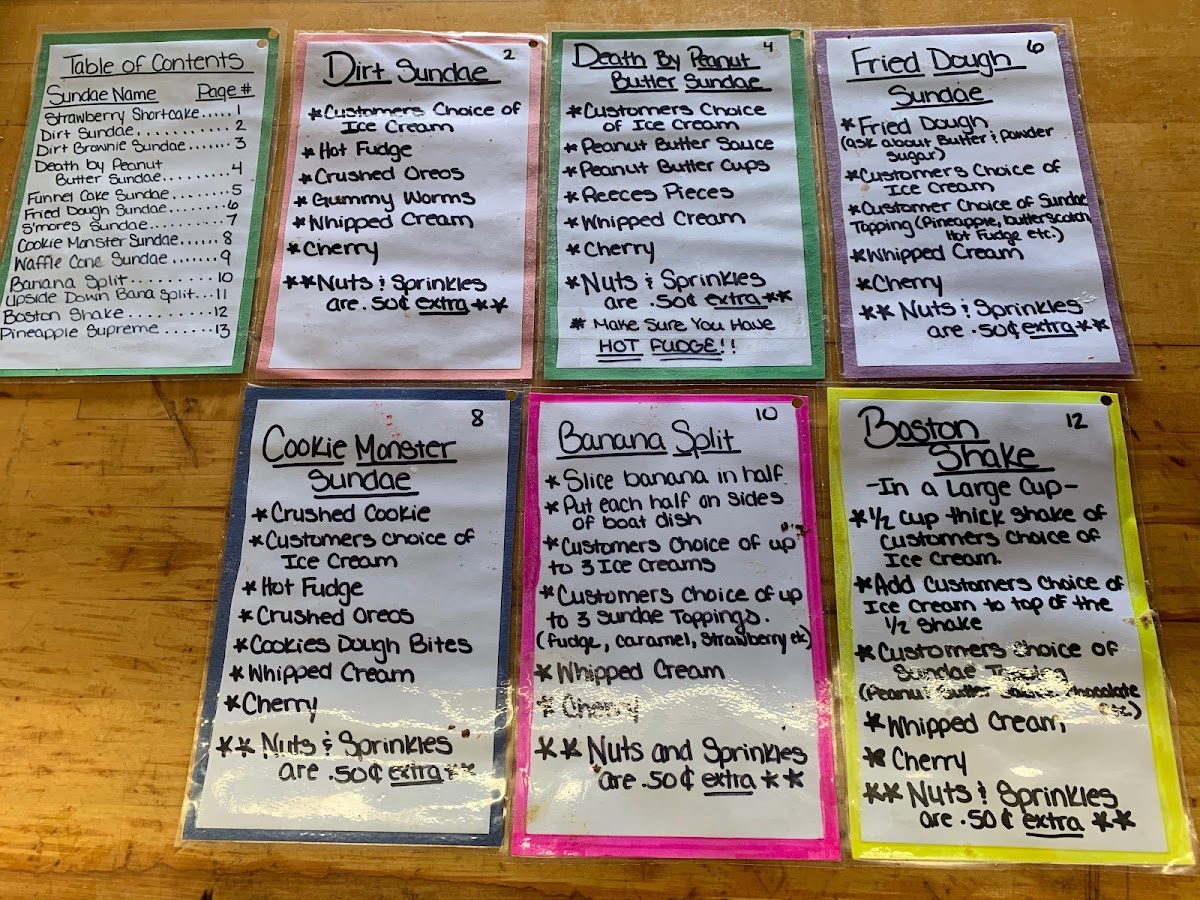 Table of Contents
Sundae Name Page #
Strawberry Shortcake.....1
Dirt Sundae...........2
Dirt Brownie Sundae.......3
Death by Peanut
Butter Sundae.........4
Funnel Cake Sundae.......5
Fried Dough Sundae.......6
S'mores Sundae.........7
Cookie Monster Sundae......8
Waffle Cone Sundae.......9
Banana Split.........10
Upside Down Bana Split...11
Boston Shake..........12
Pineapple Supreme......13
2
Dirt Sundae
*Customers Choice of
Ice Cream
*Hot Fudge
*Crushed Oreos
*Gummy Worms
*Whipped Cream
*Cherry
**Nuts & Sprinkles
are .50¢ extra**
4
Death By Peanut
Butter Sundae
*Customers Choice
of Ice Cream
*Peanut Butter Sauce
*Peanut Butter Cups
*Reeces Pieces
*Whipped Cream
*Cherry
*Nuts & Sprinkles
are .50¢ extra**
* Make Sure You Have
HOT FUDGE!!
6
Fried Dough
Sundae
*Fried Dough
(ask about Butter & Powder
Sugar)
*Customers Choice of
Ice Cream
*Customer Choice of Sundae
Topping (Pineapple, butterscotch
Hot Fudge etc.)
*Whipped Cream
*Cherry
** Nuts & Sprinkles
are .50¢ extra**
8
Cookie Monster
Sundae
*Crushed Cookie
*Customers choice of
Ice Cream
*Hot Fudge
*Crushed Oreos
*Cookies Dough Bites
*Whipped Cream
*Cherry
** Nuts & Sprinkles
are .50¢ extra**
10
Banana Split
*Slice banana in half
*Put each half on sides
of boat dish
*Customers Choice of up
to 3 Ice Creams
*Customers Choice of up
to 3 Sundae Toppings.
(fudge, caramel, strawberry etc)
*Whipped Cream
*Cherry
**Nuts and Sprinkles
are .50¢ extra**
12
Boston
Shake
-In a Large Cup-
*1/2 cup thick shake of
customers choice of
Ice Cream.
*Add Customers Choice of
Ice Cream to top of the
1/2 shake
*Customers Choice of
Sundae Topping
(Peanut Butter Chocolate
etc)
*Whipped Cream
*Cherry
**Nuts & Sprinkles
are .50¢ extra **